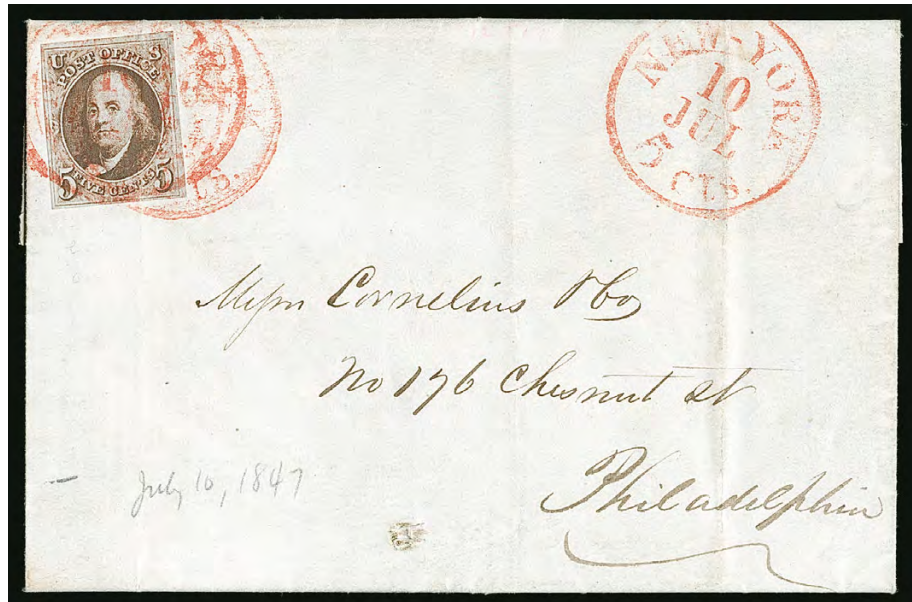 U S
POST OFFICE
5 FIVE CENTS 5
NEW-YORK
10
JUL
5 CTS.
Messrs Cornelius & Co
No 176 Chesnut St
Philadelphia
July 10, 1847